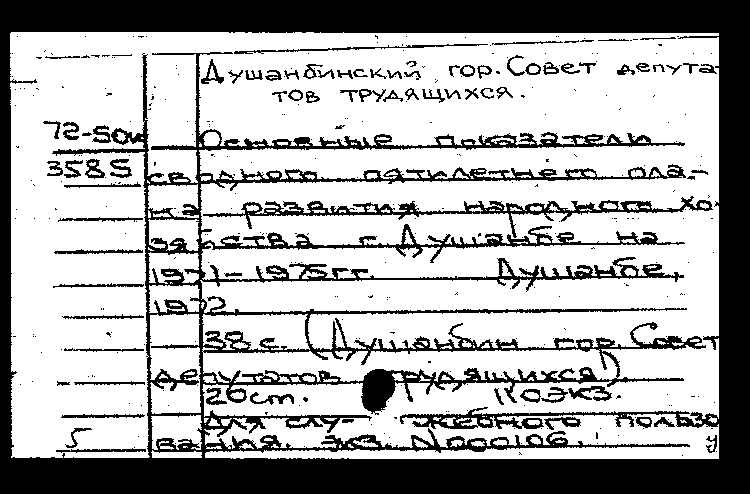 Душанбинский гор. Совет депута-
тов трудящихся.
72-50и Основные показатели
3585 сводного пятилетнего пла-
на развития народного хо-
зяйства г. Душанбе на
1971-1975гг. Душанбе,
1972.
38 с. (Душанбин гор. Совет
депутатов трудящихся).
20cm. 110экз.
Для слу- жебного пользо
5 вания. экз. N000106. у